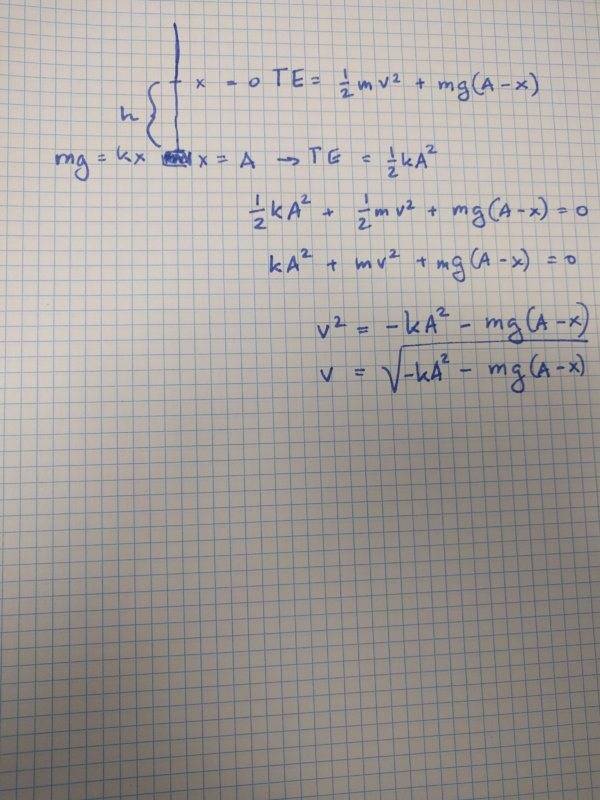 x = 0 TE = ½mv² + mg(A-x)
h
mg = kx x = A → TE = ½kA²
½kA² + ½mv² + mg(A-x) = 0
kA² + mv² + mg(A-x) = 0
v² = -kA² - mg(A-x)
v = √(-kA² - mg(A-x))